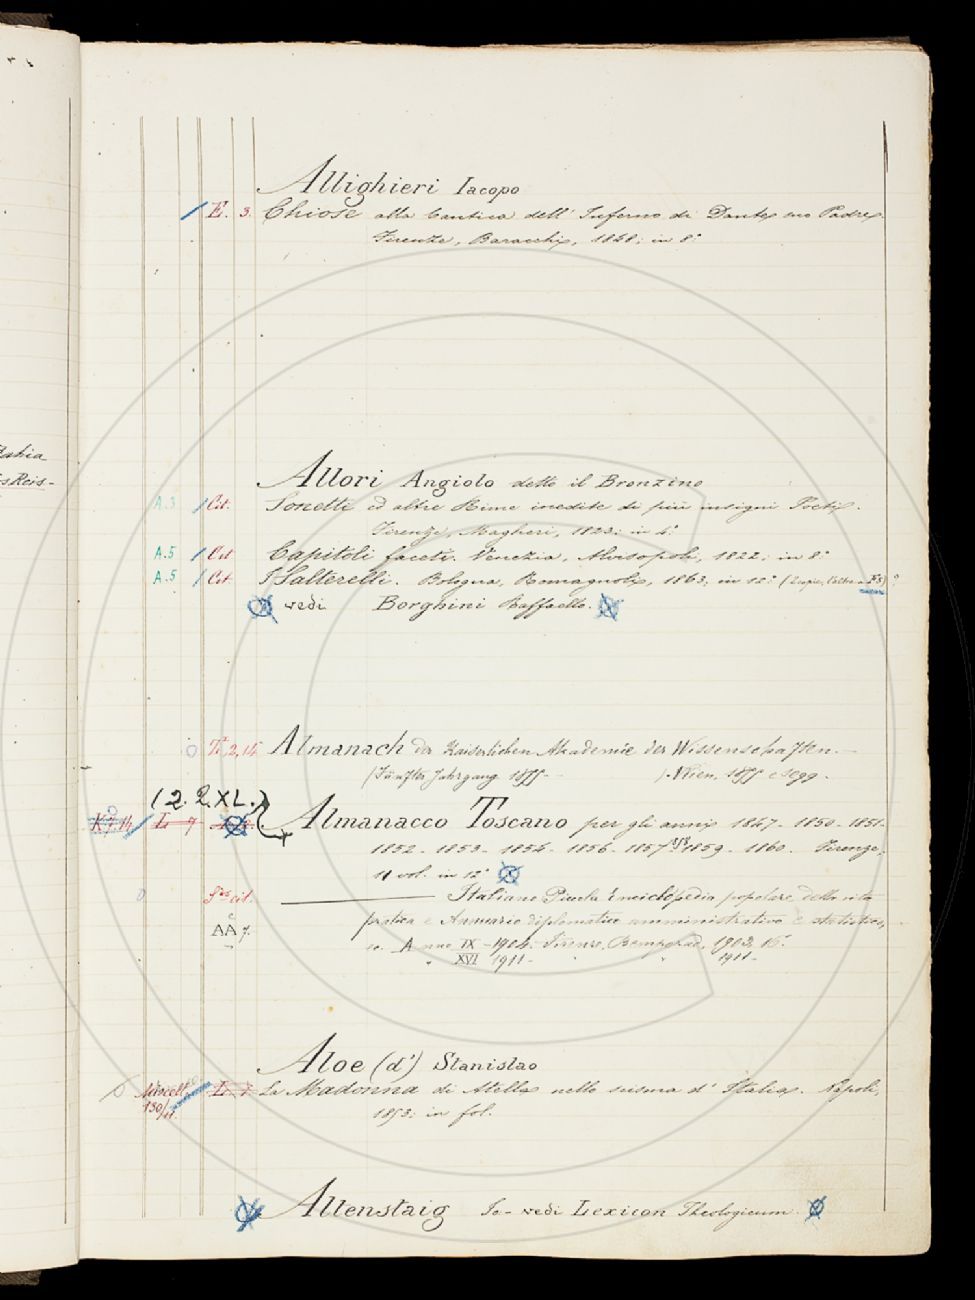 Bahia
s Reis-
Allighieri Iacopo
E. 3. Chiose alla Cantica dell' Inferno di Dante suo Padre.
Firenze, Baracchi, 1848; in 8°
Allori Angiolo detto il Bronzino
A.3 Cit. Sonetti ed altre Rime inedite di più insigni Poeti.
Firenze, Magheri, 1823; in 4°
A.5 Cit Capitoli faceti. Venezia, Alvisopoli, 1822; in 8°
A.5 Cit. I Salterelli. Bologna, Romagnoli, 1863; in 12°
vedi Borghini Raffaello.
Almanach der Kaiserlichen Akademie der Wissenschaften.
(Fünfter Jahrgang 1855- ). Wien, 1855 e segg.
(2.2.XL.)
K.7.14 L 7 Almanacco Toscano per gli anni 1847- 1850- 1851-
1852- 1853- 1854- 1856- 1857 1858 1859- 1860- Firenze,
11 vol. in 12°
Italiano Piccola Enciclopedia popolare della vita
AA 7. pratica e Annuario diplomatico amministrativo e statistico,
Anno IX - 1904. Firenze, Bemporad, 1903. 16°.
" XVI 1911- " " 1911-
Aloe (d') Stanislao
Miscell. 130/11. L. 7 La Madonna di Atella nello scisma d' Italia. Napoli,
1853; in fol.
Altenstaig Io- vedi Lexicon Theologicum.